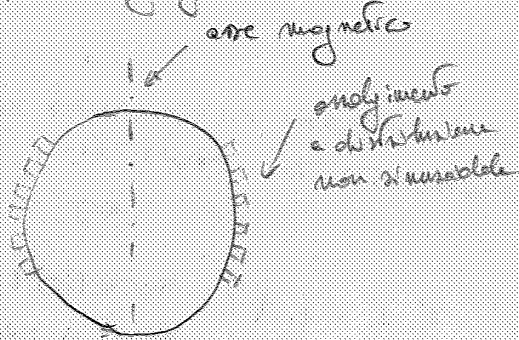 asse magnetico
avvolgimento
a distribuzione
non sinusoidale